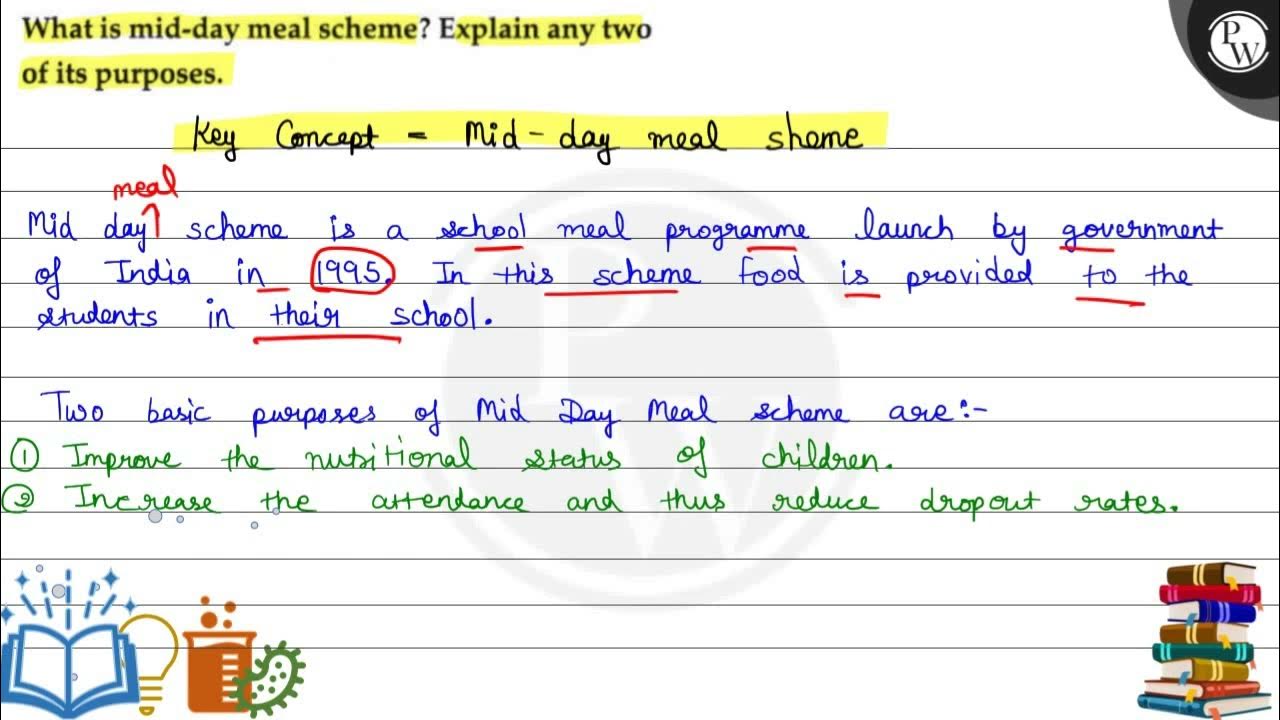 What is mid-day meal scheme? Explain any two
of its purposes.
PW
Key Concept = Mid-day meal sheme
meal
Mid day scheme is a school meal programme launch by government
of India in 1995. In this scheme food is provided to the
students in their school.
Two basic purposes of Mid Day Meal scheme are:-
① Improve the nutritional status of children.
② Increase the attendance and thus reduce dropout rates.